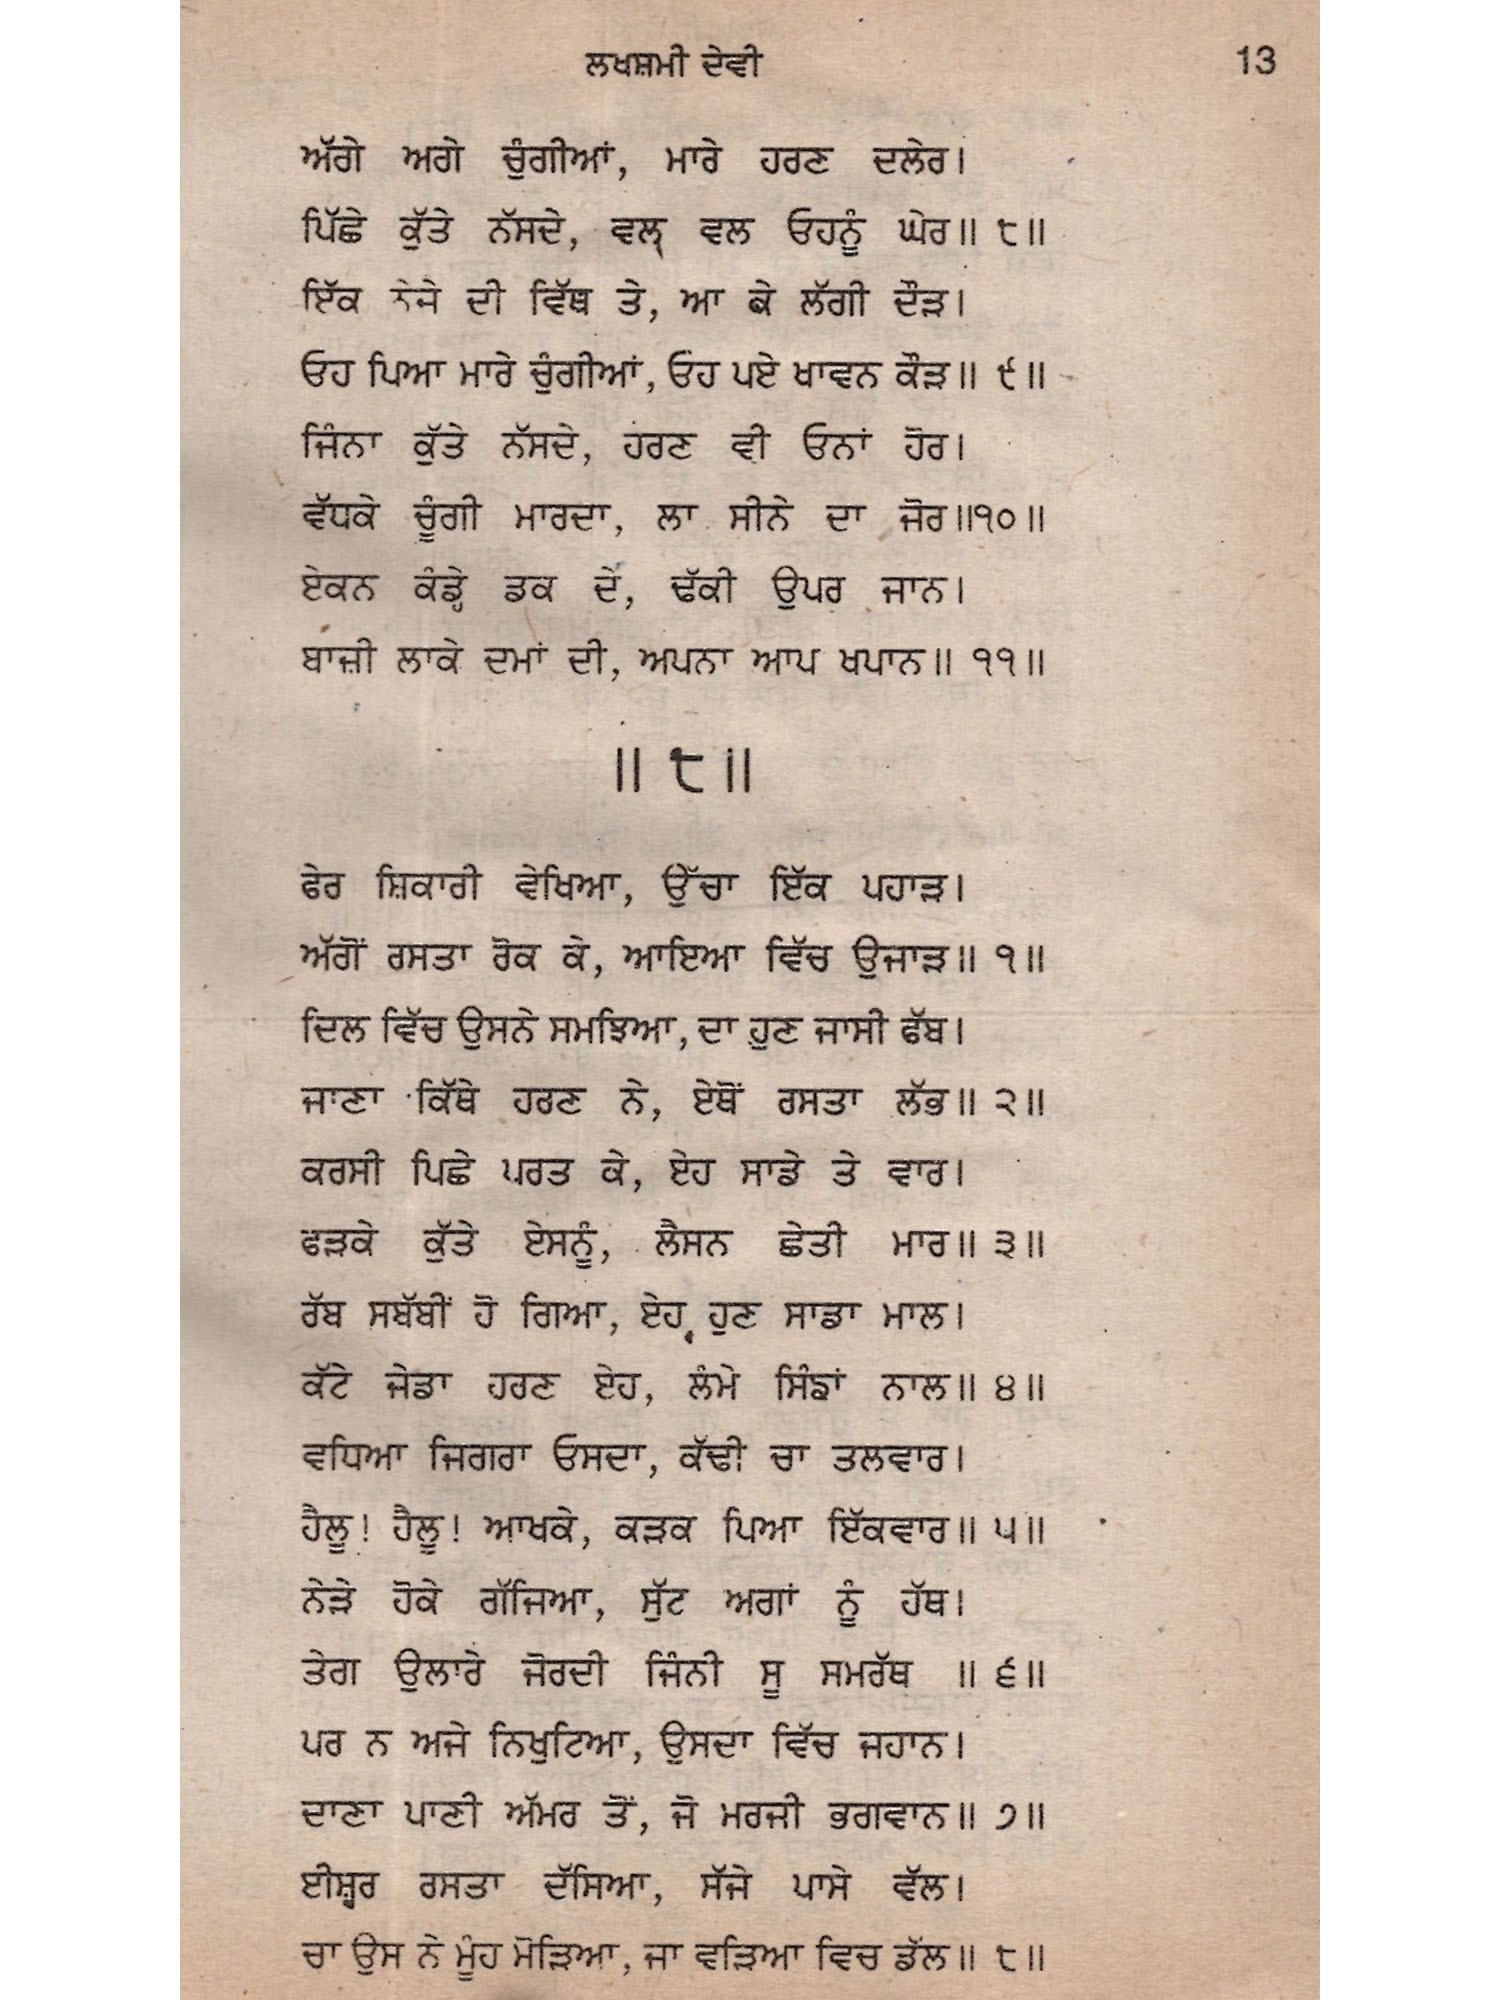 ਲਖਸ਼ਮੀ ਦੇਵੀ 13
ਅੱਗੇ ਅਗੇ ਚੁੰਗੀਆਂ, ਮਾਰੇ ਹਰਣ ਦਲੇਰ।
ਪਿੱਛੇ ਕੁੱਤੇ ਨੱਸਦੇ, ਵਲ੍ਹ ਵਲ ਓਹਨੂੰ ਘੇਰ॥ ੮॥
ਇੱਕ ਨੇਜੇ ਦੀ ਵਿੱਥ ਤੇ, ਆ ਕੇ ਲੱਗੀ ਦੌੜ।
ਓਹ ਪਿਆ ਮਾਰੇ ਚੁੰਗੀਆਂ, ਓਹ ਪਏ ਖਾਵਨ ਕੌੜ॥ ੯॥
ਜਿੰਨਾ ਕੁੱਤੇ ਨੱਸਦੇ, ਹਰਣ ਵੀ ਓਨਾਂ ਹੋਰ।
ਵੱਧਕੇ ਚੁੰਗੀ ਮਾਰਦਾ, ਲਾ ਸੀਨੇ ਦਾ ਜੋਰ॥੧੦॥
ਏਕਨ ਕੰਡ੍ਹੇ ਡਕ ਦੇ, ਢੱਕੀ ਉਪਰ ਜਾਨ।
ਬਾਜ਼ੀ ਲਾਕੇ ਦਮਾਂ ਦੀ, ਅਪਨਾ ਆਪ ਖਪਾਨ॥ ੧੧॥
॥ ੮॥
ਫੇਰ ਸ਼ਿਕਾਰੀ ਵੇਖਿਆ, ਉੱਚਾ ਇੱਕ ਪਹਾੜ।
ਅੱਗੋਂ ਰਸਤਾ ਰੋਕ ਕੇ, ਆਇਆ ਵਿੱਚ ਉਜਾੜ॥ ੧॥
ਦਿਲ ਵਿੱਚ ਉਸਨੇ ਸਮਝਿਆ, ਦਾ ਹੁਣ ਜਾਸੀ ਫੱਬ।
ਜਾਣਾ ਕਿੱਥੇ ਹਰਣ ਨੇ, ਏਥੋਂ ਰਸਤਾ ਲੱਭ॥ ੨॥
ਕਰਸੀ ਪਿਛੇ ਪਰਤ ਕੇ, ਏਹ ਸਾਡੇ ਤੇ ਵਾਰ।
ਫੜਕੇ ਕੁੱਤੇ ਏਸਨੂੰ, ਲੈਸਨ ਛੇਤੀ ਮਾਰ॥ ੩॥
ਰੱਬ ਸਬੱਬੀਂ ਹੋ ਗਿਆ, ਏਹ ਹੁਣ ਸਾਡਾ ਮਾਲ।
ਕੱਟੇ ਜੇਡਾ ਹਰਣ ਏਹ, ਲੰਮੇ ਸਿੰਙਾਂ ਨਾਲ॥ ੪॥
ਵਧਿਆ ਜਿਗਰਾ ਓਸਦਾ, ਕੱਢੀ ਚਾ ਤਲਵਾਰ।
ਹੈਲੂ! ਹੈਲੂ! ਆਖਕੇ, ਕੜਕ ਪਿਆ ਇੱਕਵਾਰ॥ ੫॥
ਨੇੜੇ ਹੋਕੇ ਗੱਜਿਆ, ਸੁੱਟ ਅਗਾਂ ਨੂੰ ਹੱਥ।
ਤੇਗ ਉਲਾਰੇ ਜੋਰਦੀ ਜਿੰਨੀ ਸੂ ਸਮਰੱਥ ॥ ੬॥
ਪਰ ਨ ਅਜੇ ਨਿਖੁਟਿਆ, ਉਸਦਾ ਵਿੱਚ ਜਹਾਨ।
ਦਾਣਾ ਪਾਣੀ ਅੱਮਰ ਤੋਂ, ਜੋ ਮਰਜੀ ਭਗਵਾਨ॥ ੭॥
ਈਸ਼੍ਵਰ ਰਸਤਾ ਦੱਸਿਆ, ਸੱਜੇ ਪਾਸੇ ਵੱਲ।
ਚਾ ਉਸ ਨੇ ਮੂੰਹ ਮੋੜਿਆ, ਜਾ ਵੜਿਆ ਵਿਚ ਡੱਲ॥ ੮॥